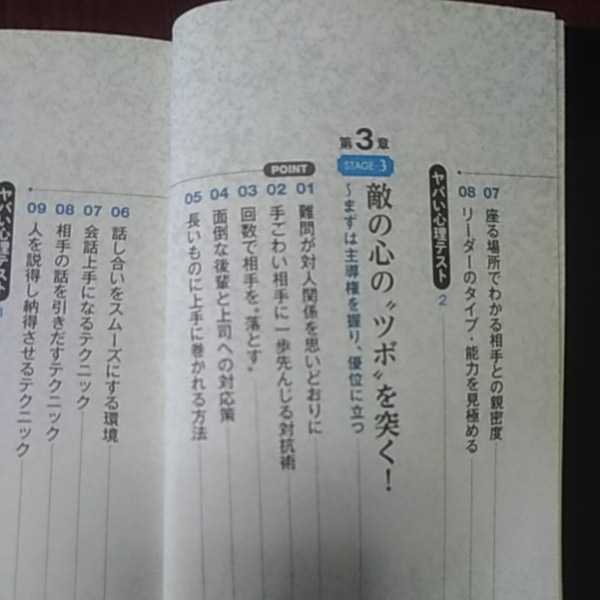 07 座る場所でわかる相手との親密度
08 リーダーのタイプ・能力を見極める
ヤバい心理テスト 2
第3章
STAGE-3
敵の心の〝ツボ〟を突く!
〜まずは主導権を握り、優位に立つ
POINT
01 難問が対人関係を思いどおりに
02 手ごわい相手に一歩先んじる対抗術
03 回数で相手を〝落とす〟
04 面倒な後輩と上司への対応策
05 長いものに上手に巻かれる方法
06 話し合いをスムーズにする環境
07 会話上手になるテクニック
08 相手の話を引きだすテクニック
09 人を説得し納得させるテクニック
ヤバい心理テスト